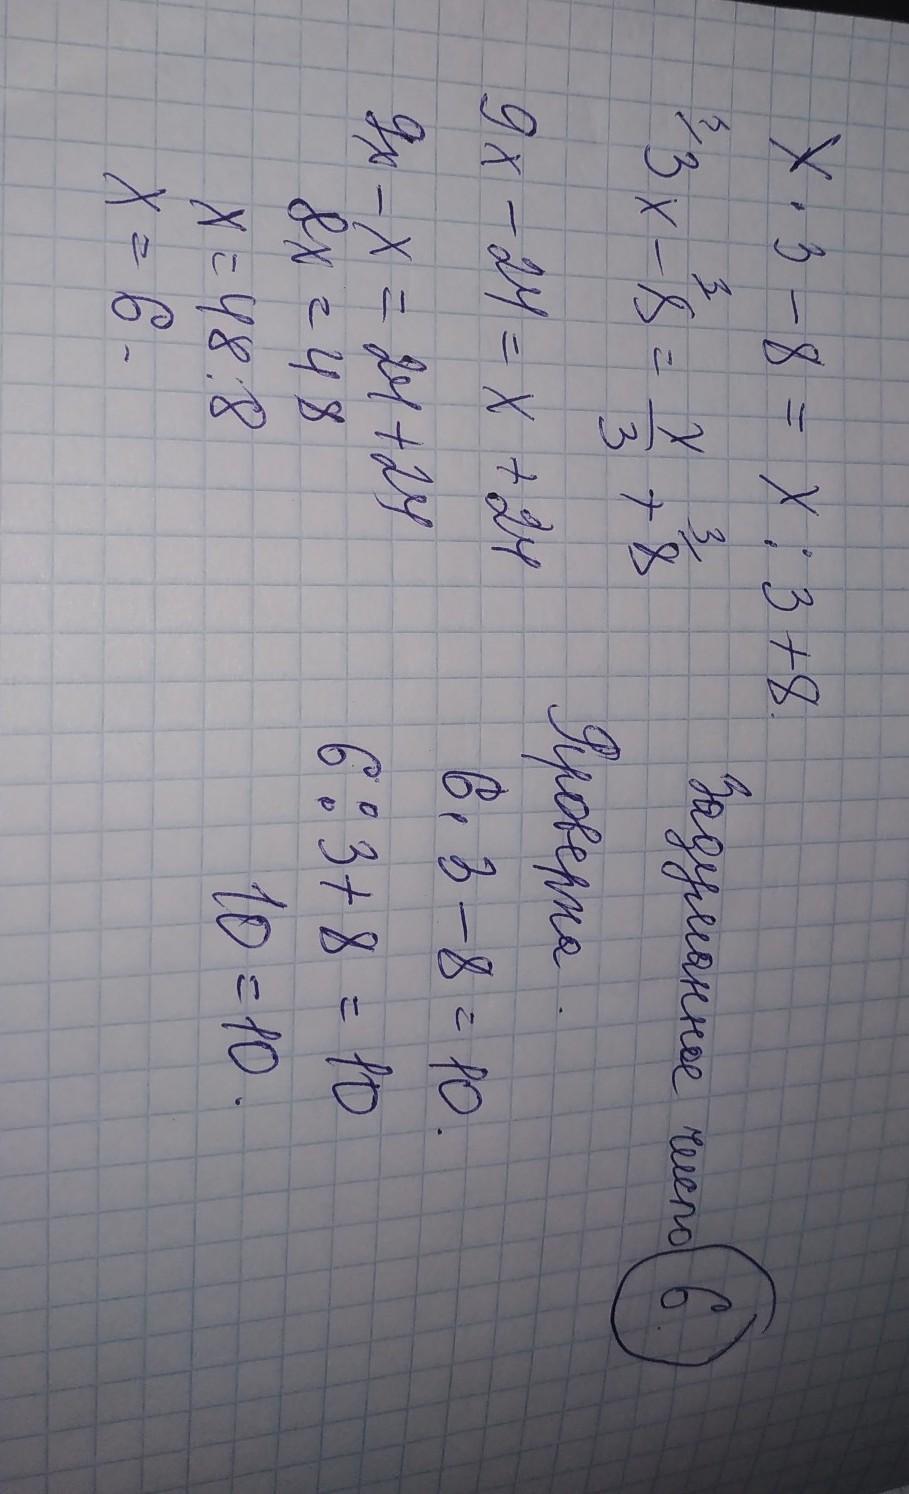 x · 3 - 8 = x : 3 + 8.
3/ 3x - 3/ 8 = x/3 + 3/ 8
9x - 24 = x + 24
9x - x = 24 + 24
8x = 48
x = 48 : 8
x = 6.
Задуманное число 6.
Проверка.
6 · 3 - 8 = 10.
6 : 3 + 8 = 10
10 = 10.